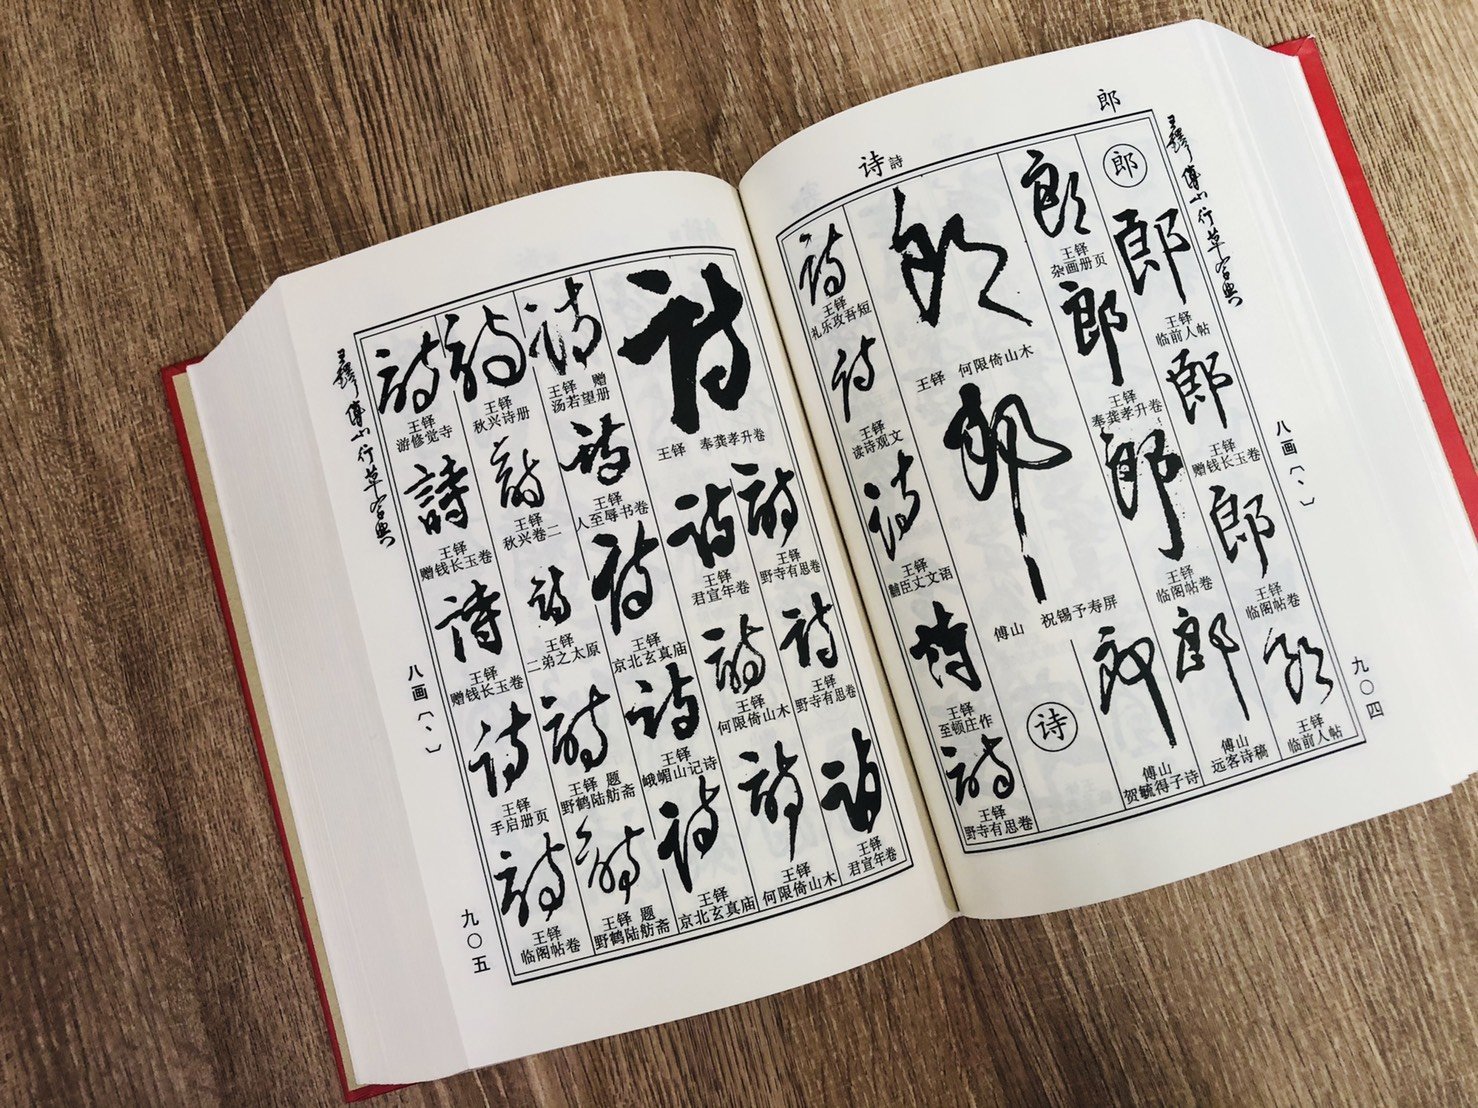 王鐸傅山行草字典
郎
诗 詩
八画〔丶〕
九〇四
郎
郎
王铎
临前人帖
郎
王铎
赠钱长玉卷
郎
王铎
临阁帖卷
郎
王铎
临前人帖
郎
王铎
杂画册页
郎
王铎
奉龚孝升卷
郎
王铎
临阁帖卷
郎
傅山
远客诗稿
郎
傅山
贺毓得子诗
郎
王铎 何限倚山木
郎
傅山 祝锡予寿屏
诗
詩
王铎
礼乐攻吾短
詩
王铎
读诗观文
詩
王铎
臣丈文语
詩
王铎
至顿庄作
詩
王铎
野寺有思卷
詩
王铎 奉龚孝升卷
詩
王铎
野寺有思卷
詩
王铎
野寺有思卷
詩
王铎
君宣年卷
詩
王铎
君宣年卷
詩
王铎
何限倚山木
詩
王铎
何限倚山木
詩
王铎 赠
汤若望册
詩
王铎
人至辱书卷
詩
王铎
京北玄真庙
詩
王铎
峨嵋山记诗
詩
王铎
京北玄真庙
詩
王铎
秋兴诗册
詩
王铎
秋兴卷二
詩
王铎
二弟之太原
詩
王铎 题
野鹤陆舫斋
詩
王铎 题
野鹤陆舫斋
詩
王铎
游修觉寺
詩
王铎
赠钱长玉卷
詩
王铎
赠钱长玉卷
詩
王铎
手启册页
詩
王铎
临阁帖卷
王鐸傅山行草字典
八画〔丶〕
九〇五